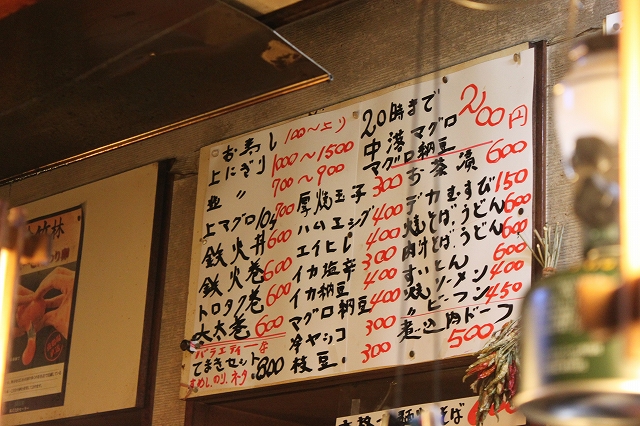 お寿し 100〜より
上にぎり 1000〜1500
並 〃 700〜900
上マグロ10ケ 700
鉄火丼 600
鉄火巻 600
トロタク巻 600
大太巻 600
バラエティー
てまきセット 800
すめし、のり、ネタ
厚焼玉子 300
ハムエッグ 400
エイヒレ 400
イカ塩辛 300
イカ納豆 400
マグロ納豆 400
冷ヤシコ 300
枝豆 300
20時まで
中港マグロ 200円
マグロ納豆
お茶漬 600
デカむすび 150
焼そばうどん 600
肉汁そばうどん 600
すいとん 600
焼ソーメン 400
〃 ビーフン 450
煮込肉ドーフ 500